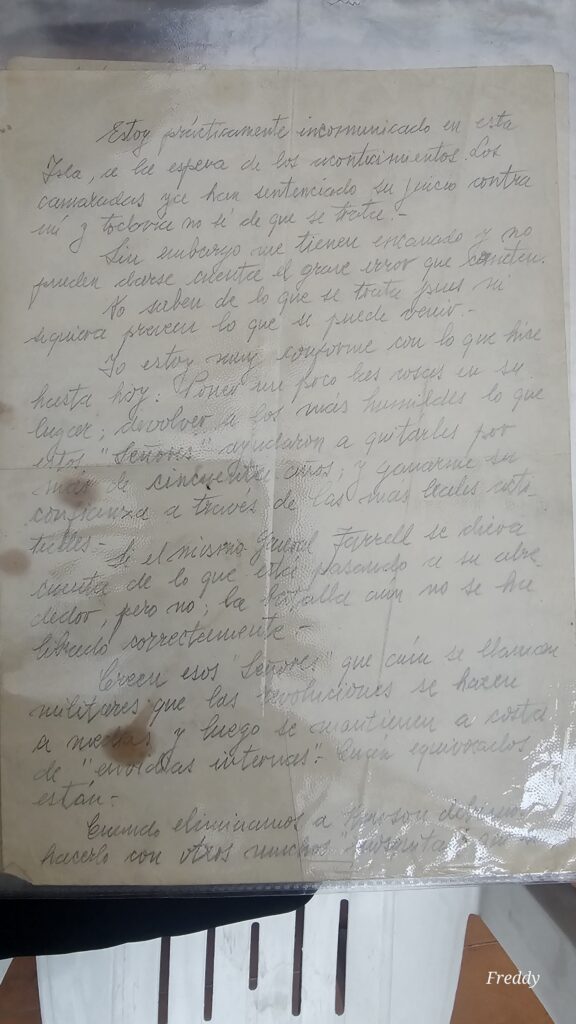 Estoy prácticamente incomunicado en esta
Isla, a la espera de los acontecimientos. Los
camaradas ya han sentenciado su juicio contra
mí y todavía no sé de que se trata.-
Sin embargo me tienen encanado y no
pueden darse cuenta el grave error que cometen.
No saben de lo que se trata pues ni
siquiera preveen lo que se puede venir.-
Yo estoy muy conforme con lo que hice
hasta hoy: Poner un poco las cosas en su
lugar; devolver a los más humildes lo que
estos "Señores" ayudaron a quitarles por
más de cincuenta años; y ganarme su
confianza a través de las mas leales acti-
tudes.-
Si el mismo General Farrell se diera
cuenta de lo que está pasando a su alre-
dedor, pero no; la batalla aún no se ha
librado correctamente.-
Creen esos "Señores" que aún se llaman
militares que las revoluciones se hacen
a medias y luego se mantienen a costa
de "envidias internas". Cuán equivocados
están.-
Cuando eliminamos a
hacerlo con otros muchos
Freddy